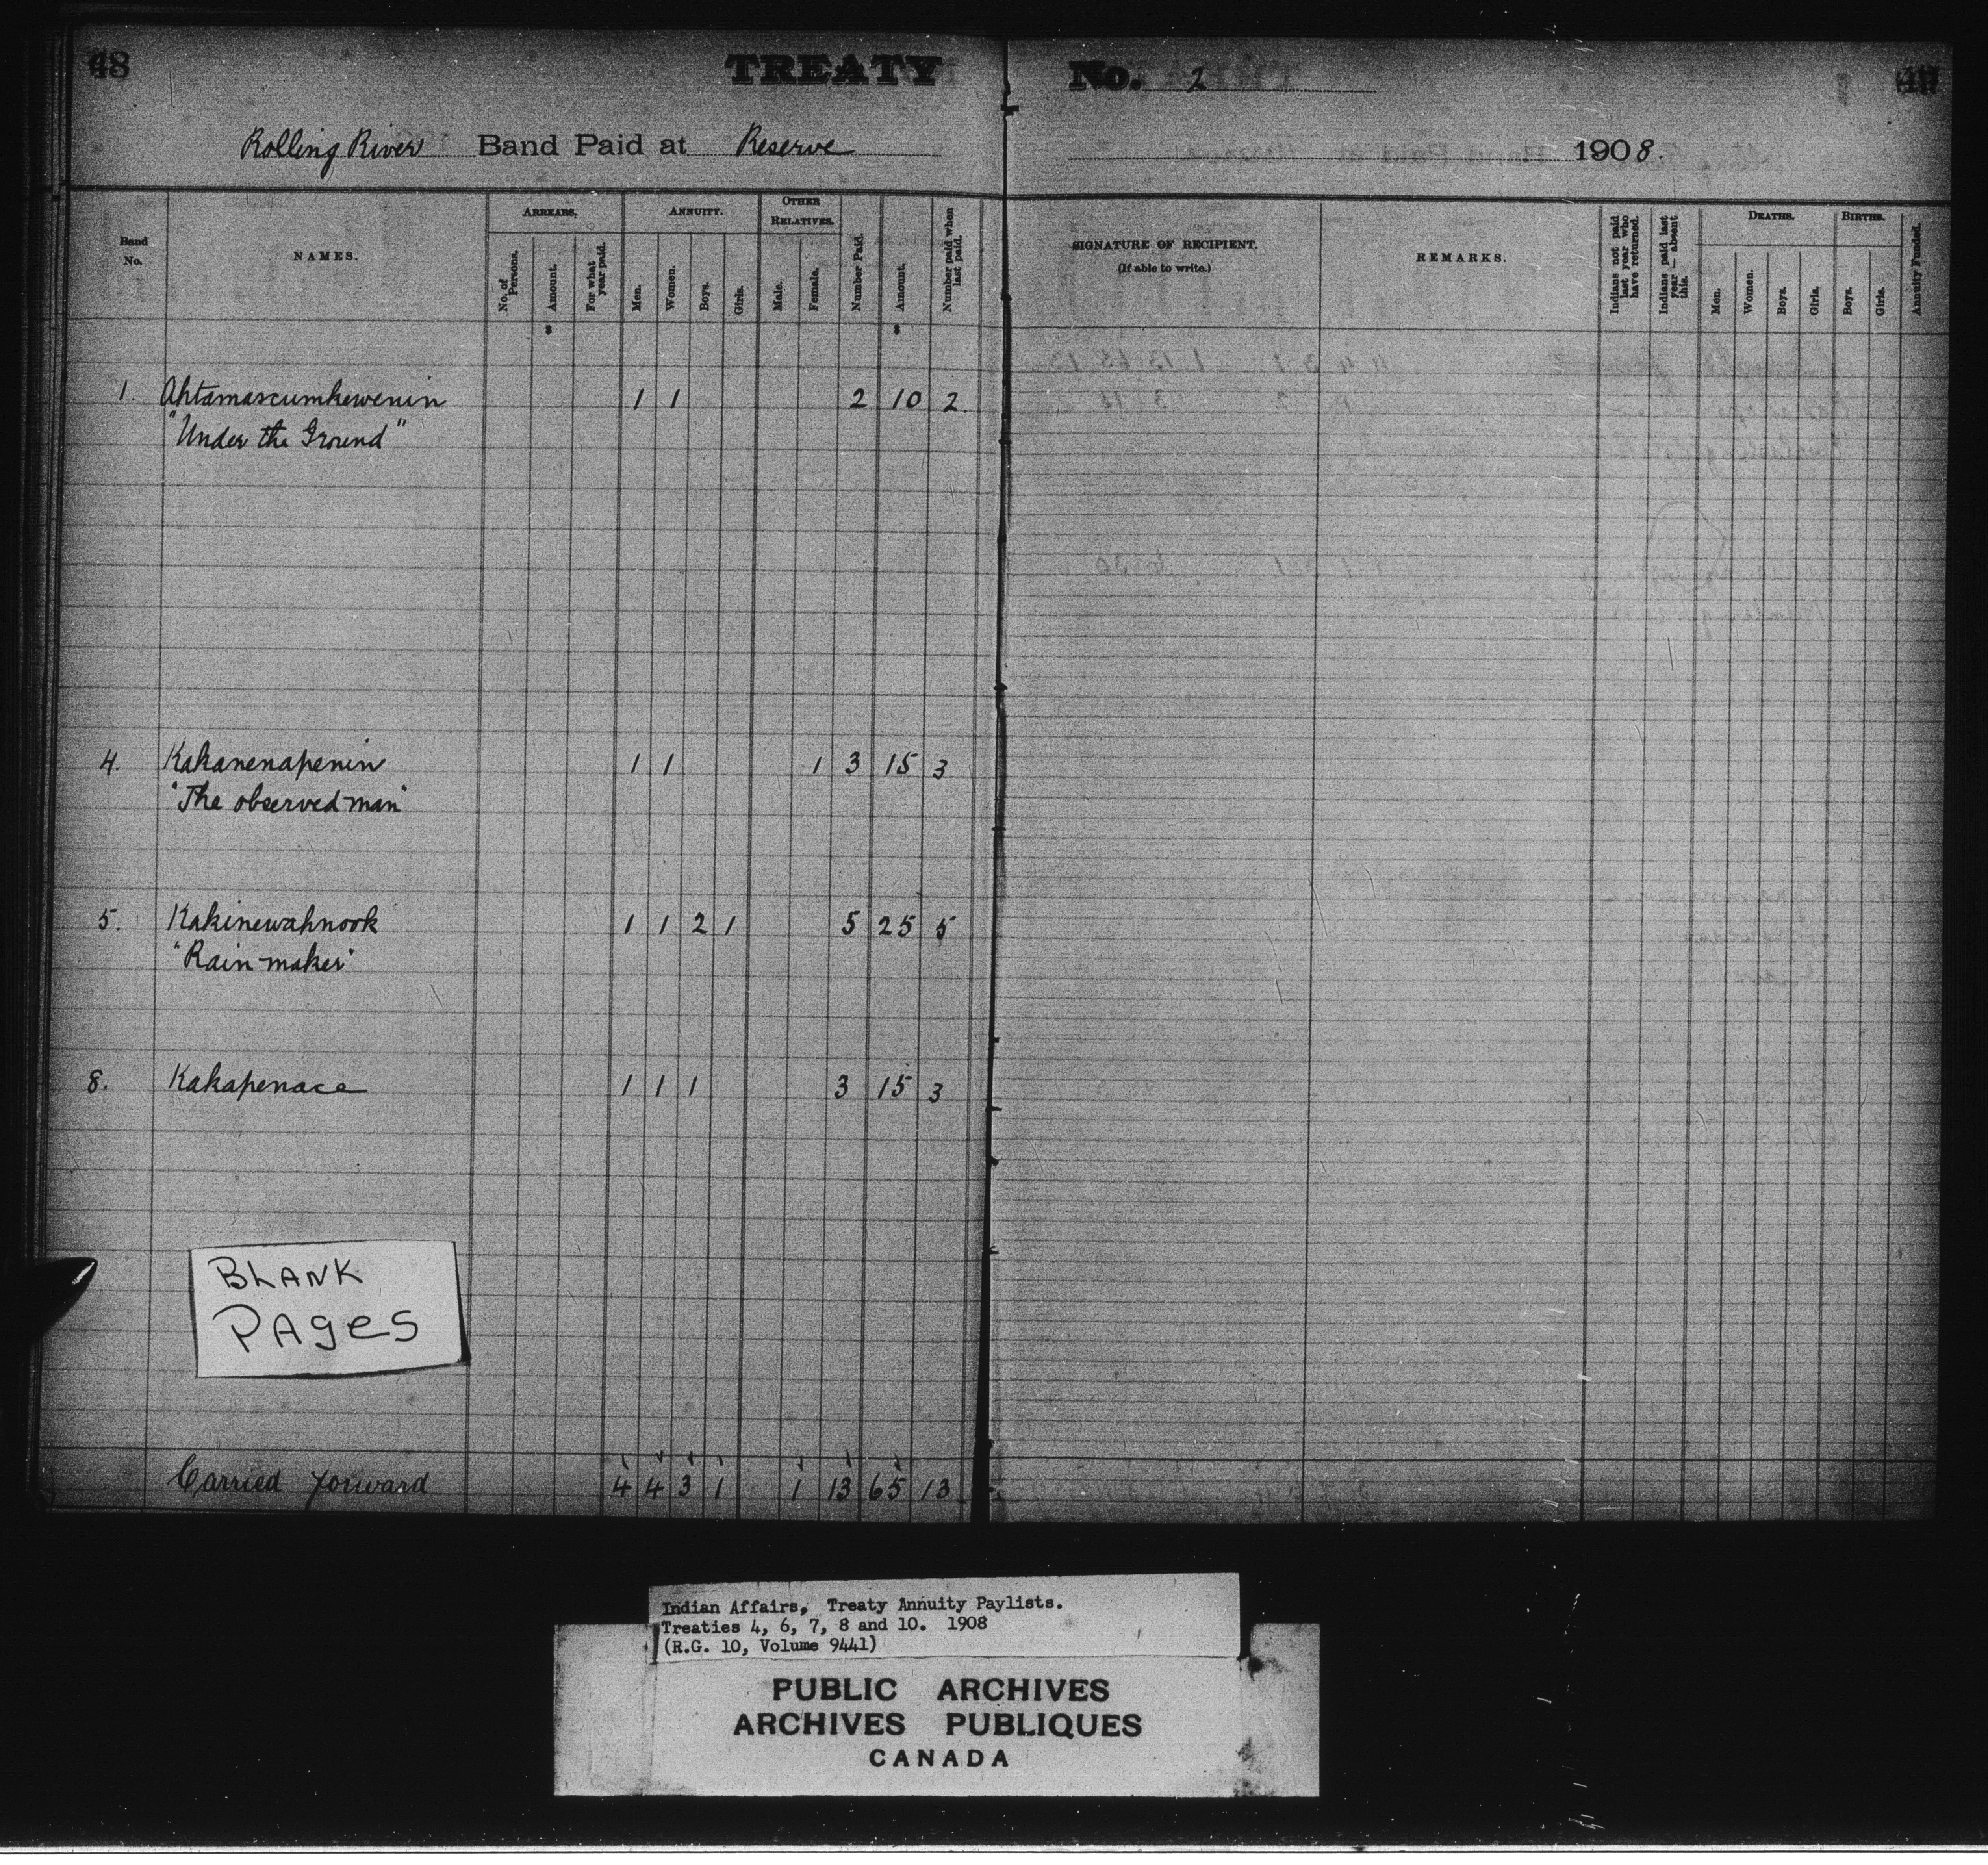 48
TREATY No. 2
Rolling River Band Paid at Reserve 1908.
Band No.
NAMES.
ARREARS.
No. of Persons.
Amount.
For what year paid.
ANNUITY.
Men.
Women.
Boys.
Girls.
OTHER RELATIVES.
Male.
Female.
Number Paid.
Amount.
Number paid when last paid.
SIGNATURE OF RECIPIENT.
(If able to write.)
REMARKS.
Indians not paid last year who have returned.
Indians paid last year — absent this.
DEATHS.
Men.
Women.
Boys.
Girls.
BIRTHS.
Boys.
Girls.
Annuity Funded.
1. Ahtamascumkewenin 1 1 2 10 2.
"Under the Ground"
4. Kakanenapenin 1 1 1 3 15 3
"The observed man"
5. Kakinewahnook 1 1 2 1 5 25 5
"Rain-maker"
8. Kakapenace 1 1 1 3 15 3
BLANK
PAges
Carried forward 4 4 3 1 1 13 65 13
Indian Affairs, Treaty Annuity Paylists.
Treaties 4, 6, 7, 8 and 10. 1908
(R.G. 10, Volume 9441)
PUBLIC ARCHIVES
ARCHIVES PUBLIQUES
CANADA